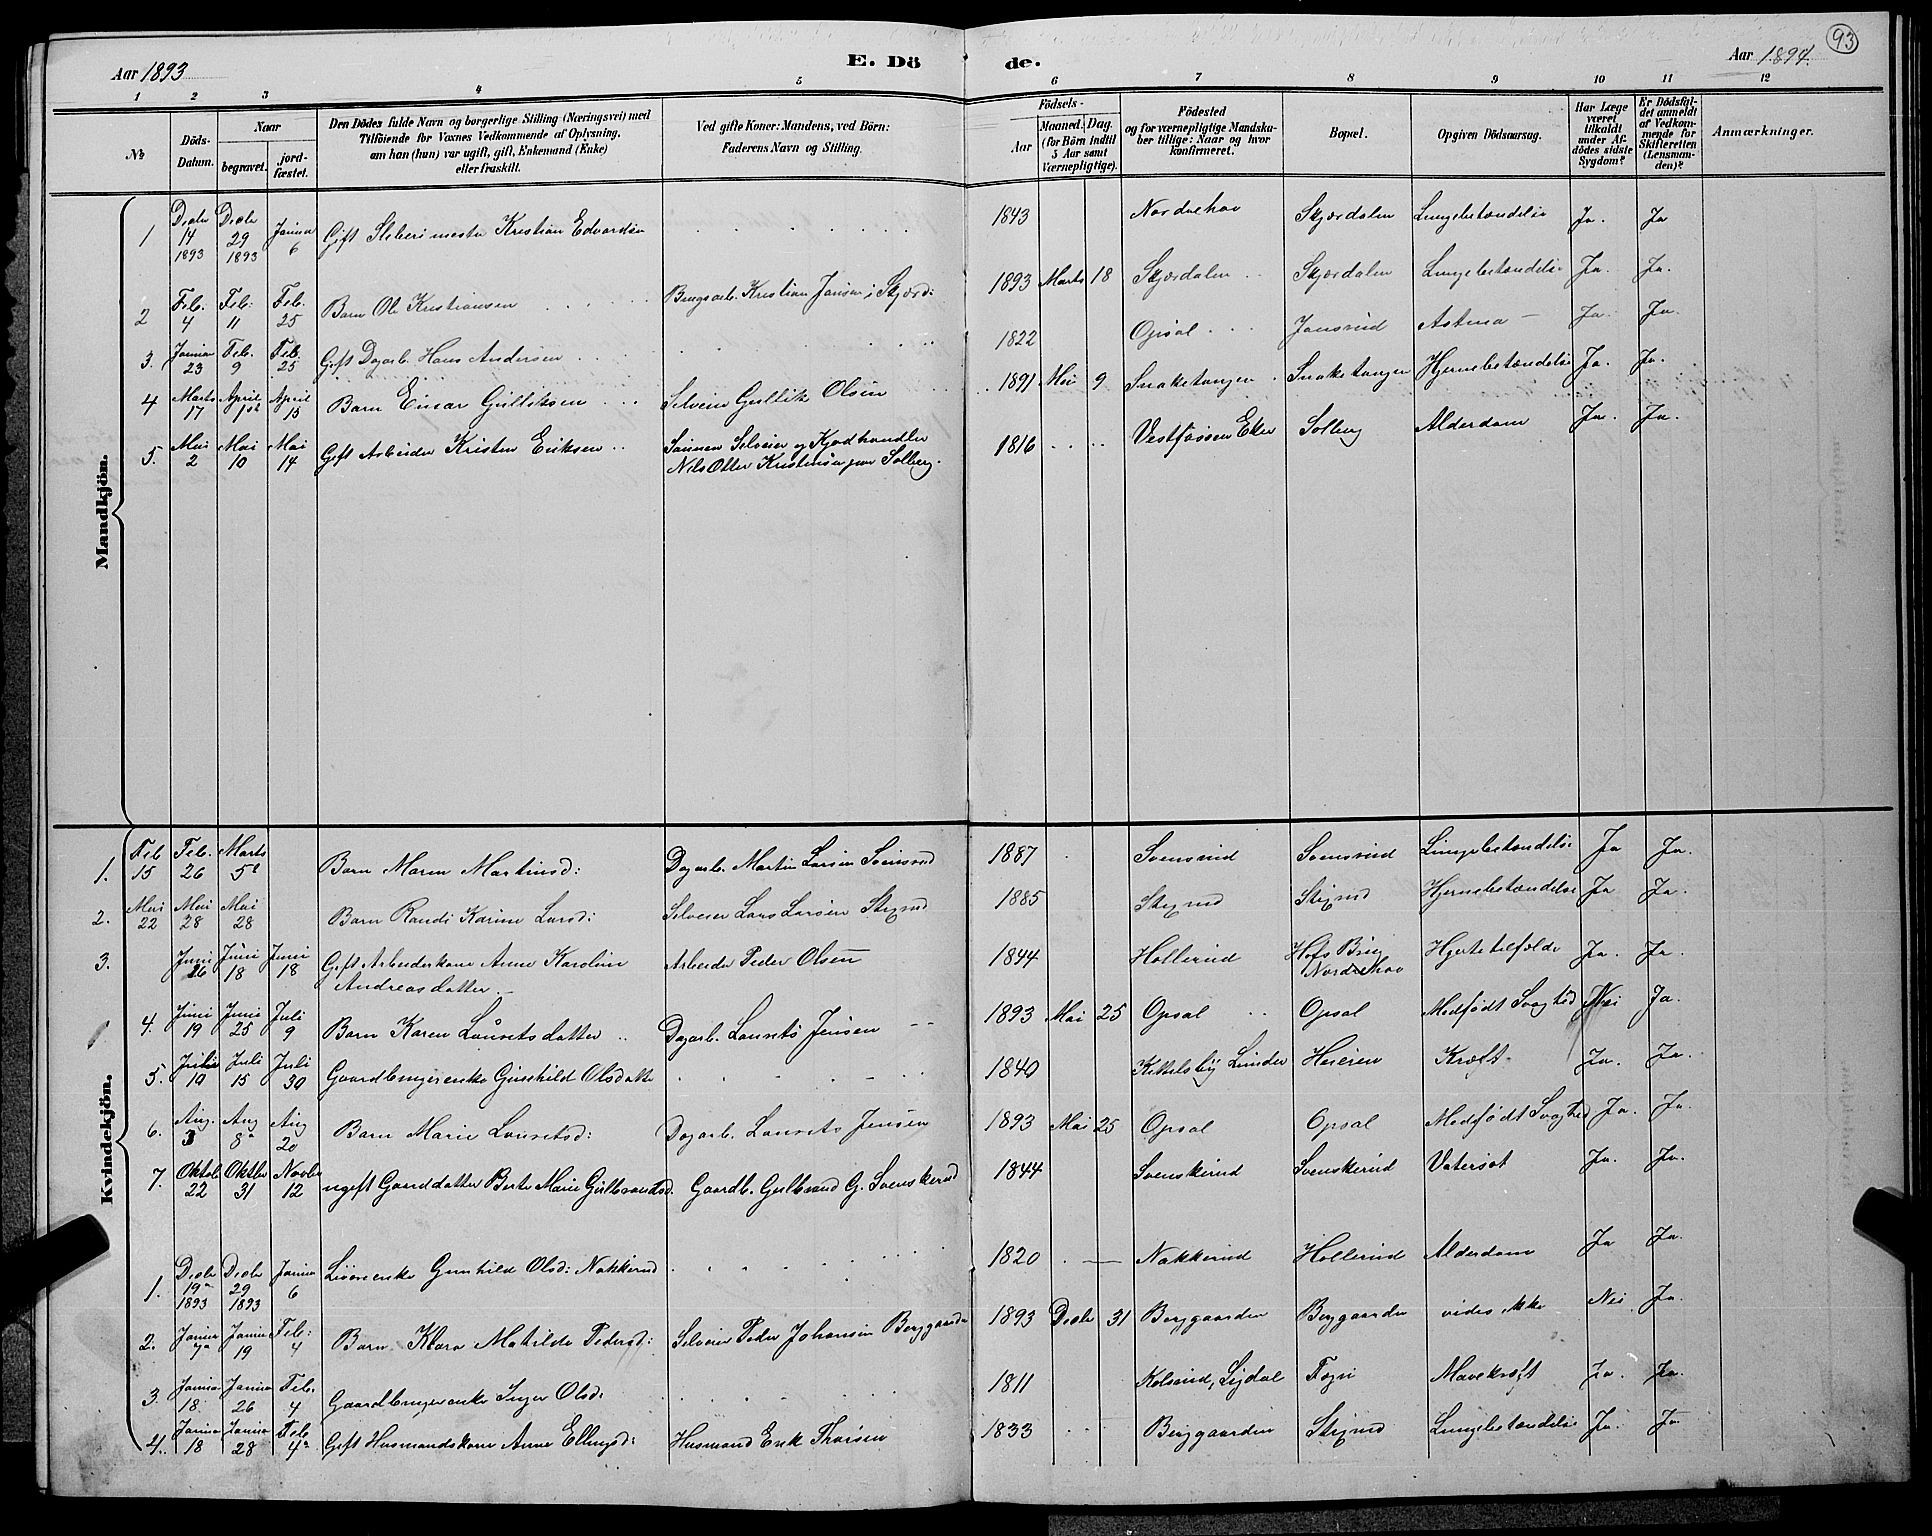 Aar 1893
E. Dö
de.
Aar 1894.
93
1 2 3 4 5 6 7 8 9 10 11 12
No
Döds-
Datum.
Naar
begravet.
jord-
fæstet.
Den Dödes fulde Navn og borgerlige Stilling (Næringsvei) med
Tilföiende for Voxnes Vedkommende af Oplysning,
om han (hun) var ugift, gift, Enkemand (Enke)
eller fraskilt.
Ved gifte Koner: Mandens, ved Börn:
Faderens Navn og Stilling.
Födsels-
Aar
Maaned. Dag.
(for Börn indtil
5 Aar samt
Værnepligtige).
Födested
og for værnepligtige Mandska-
ber tillige: Naar og hvor
konfirmeret.
Bopæl.
Opgiven Dödsaarsag.
Har Læge
været
tilkaldt
under Af-
dödes sidste
Sygdom?
Er Dödsfal-
det anmeldt
af Vedkom-
mende for
Skifteretten
(Lensman-
den)?
Anmærkninger.
Mandkjön.
1 Decbr 14 1893 Decbr 29 1893 Januar 6 Gift Kristian Edvardsen 1843 Nordrehov Skjærdalen Lungebetændelse Ja. Ja
2 Feb. 4 Feb: 11 Feb. 25 Barn Ole Kristiansen Brugsarb. Kristian Jansen i Skjærd: 1893 Marts 18 Skjærdalen Skjærdalen Lungebetændelse Ja. Ja.
3. Januar 23 Feb. 9 Feb. 25 Gift Dagarb. Hans Andersen 1822 Opsal Jonsrud Astma Ja. Ja.
4 Marts 17 April 1st April 15 Barn Einar Gulliksen Selveier Gullik Olsen 1891 Mai 9 Snaketangen Snaketangen Hjernebetændelse Ja. Ja.
5. Mai 2 Mai 10 Mai 14 Gift Arbeider Kristen Eriksen Sønnen Selveier og Kjødhandler
Nils Otter Kristensen paa Solberg. 1816 Vestfossen Eker Solberg Alderdom Ja. Ja.
Kvindekjön.
1. Feb 15 Feb. 26 Marts 5 Barn Maren Martinsd: Dagarb. Martin Larsen Svensrud 1887 Svensrud Svensrud Lungebetændelse Ja Ja.
2. Mai 22 Mai 28 Mai 28 Barn Randi Karine Larsd: Selveier Lars Larsen Stixrud 1885 Stixrud Stixrud Hjernebetændelse Ja Ja.
3. Juni 26 Juni 18 Juni 18 Gift Arbeiderkone Anne Karoline
Andreasdatter Arbeider Peder Olsen 1844 Hollerud Hofs Brug
Nordrehov Hjertetilfælde Ja. Ja.
4. Juni 19 Juni 25 Juli 9 Barn Karen Lauritsdatter Dagarb. Laurits Jensen 1893 Mai 25 Opsal Opsal Medfødt Svaghed Nei Ja.
5. Juli 10 Juli 15 Juli 30 Gaardbrugerenke Gunhild Olsdatter 1840 Kittelsby Lunder Heieren Kræft Ja. Ja.
6. Aug. 3 Aug 8 Aug 20 Barn Marie Lauritsd: Dagarb. Laurits Jensen 1893 Mai 25 Opsal Opsal Medfødt Svaghed Ja. Ja.
7. Oktob 22 Oktbr 31 Novbr 12 ugift Gaarddatter Berte Marie Gulbrandsd. Gaardb. Gulbrand G. Svenskerud 1844 Svenskerud Svenskerud Vatersot Ja. Ja.
1. Decbr 19 1893 Decbr 29 1893 Januar 6 Gunhild Olsd: Nakkerud 1820 Nakkerud Hollerud Alderdom Ja Ja.
2. Januar 7 Januar 19 Feb: 4 Barn Klara Matilde Pedersd: Selveier Peder Johansen Berggaarden 1893 Decbr 31 Berggaarden Berggaarden vides ikke Nei Ja.
3. Januar 18. Januar 26 Feb. 4 Gaardbrugerenke Inger Olsd: 1811 Kolsrud, Sigdal Mavekræft Ja. Ja.
4. Januar 18 Januar 28 Feb. 4 Gift Husmandskone Anne Ellingsd: Husmand Erik Thorsen 1833 Berggaarden Stixrud Lungebetændelse Ja. Ja